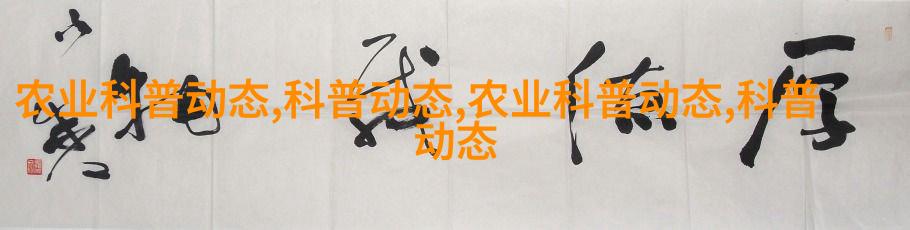 农业科普动态,科普动态,农业科普动态,科普
动态
厚德载物